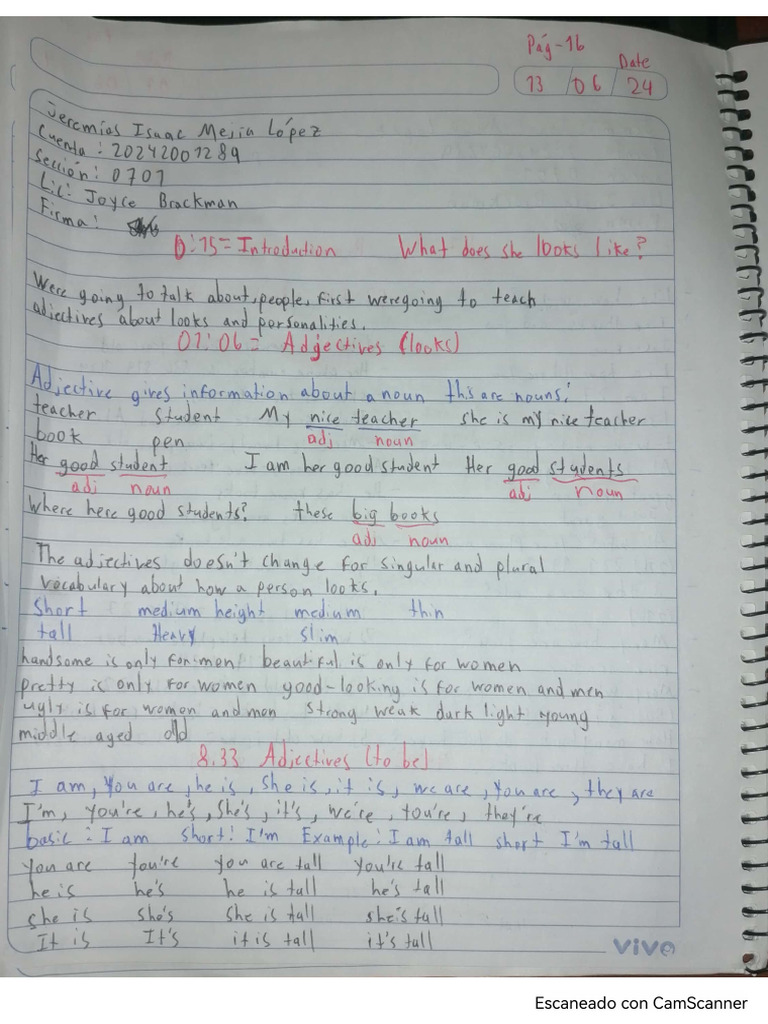 Pág-16
Date
13 / 06 / 24
Jeremías Isaac Mejia López
Cuenta: 20242001289
Sección: 0701
Lic: Joyce Brackman
Firma:
0:15= Introduction What does she looks like?
Were going to talk about, people, first weregoing to teach
adjectives about looks and personalities.
01:06= Adjectives (looks)
Adjective gives information about a noun this are nouns:
teacher student My nice teacher she is my nice teacher
book pen adj noun
Her good student I am her good student Her good students
adj noun adj noun
Where here good students? these big books
adj noun
The adjectives doesn't change for singular and plural
vocabulary about how a person looks.
Short medium height medium thin
tall Heavy slim
handsome is only for men beautiful is only for women
pretty is only for women good-looking is for women and men
ugly is for women and men strong weak dark light young
middle aged old
8.33 Adjectives (to be)
I am, you are, he is, she is, it is, we are, you are, they are
I'm, you're, he's, she's, it's, we're, you're, they're
basic: I am short! I'm Example: I am tall short I'm tall
you are you're you are tall you're tall
he is he's he is tall he's tall
she is she's she is tall she's tall
It is It's it is tall it's tall
vivo
Escaneado con CamScanner